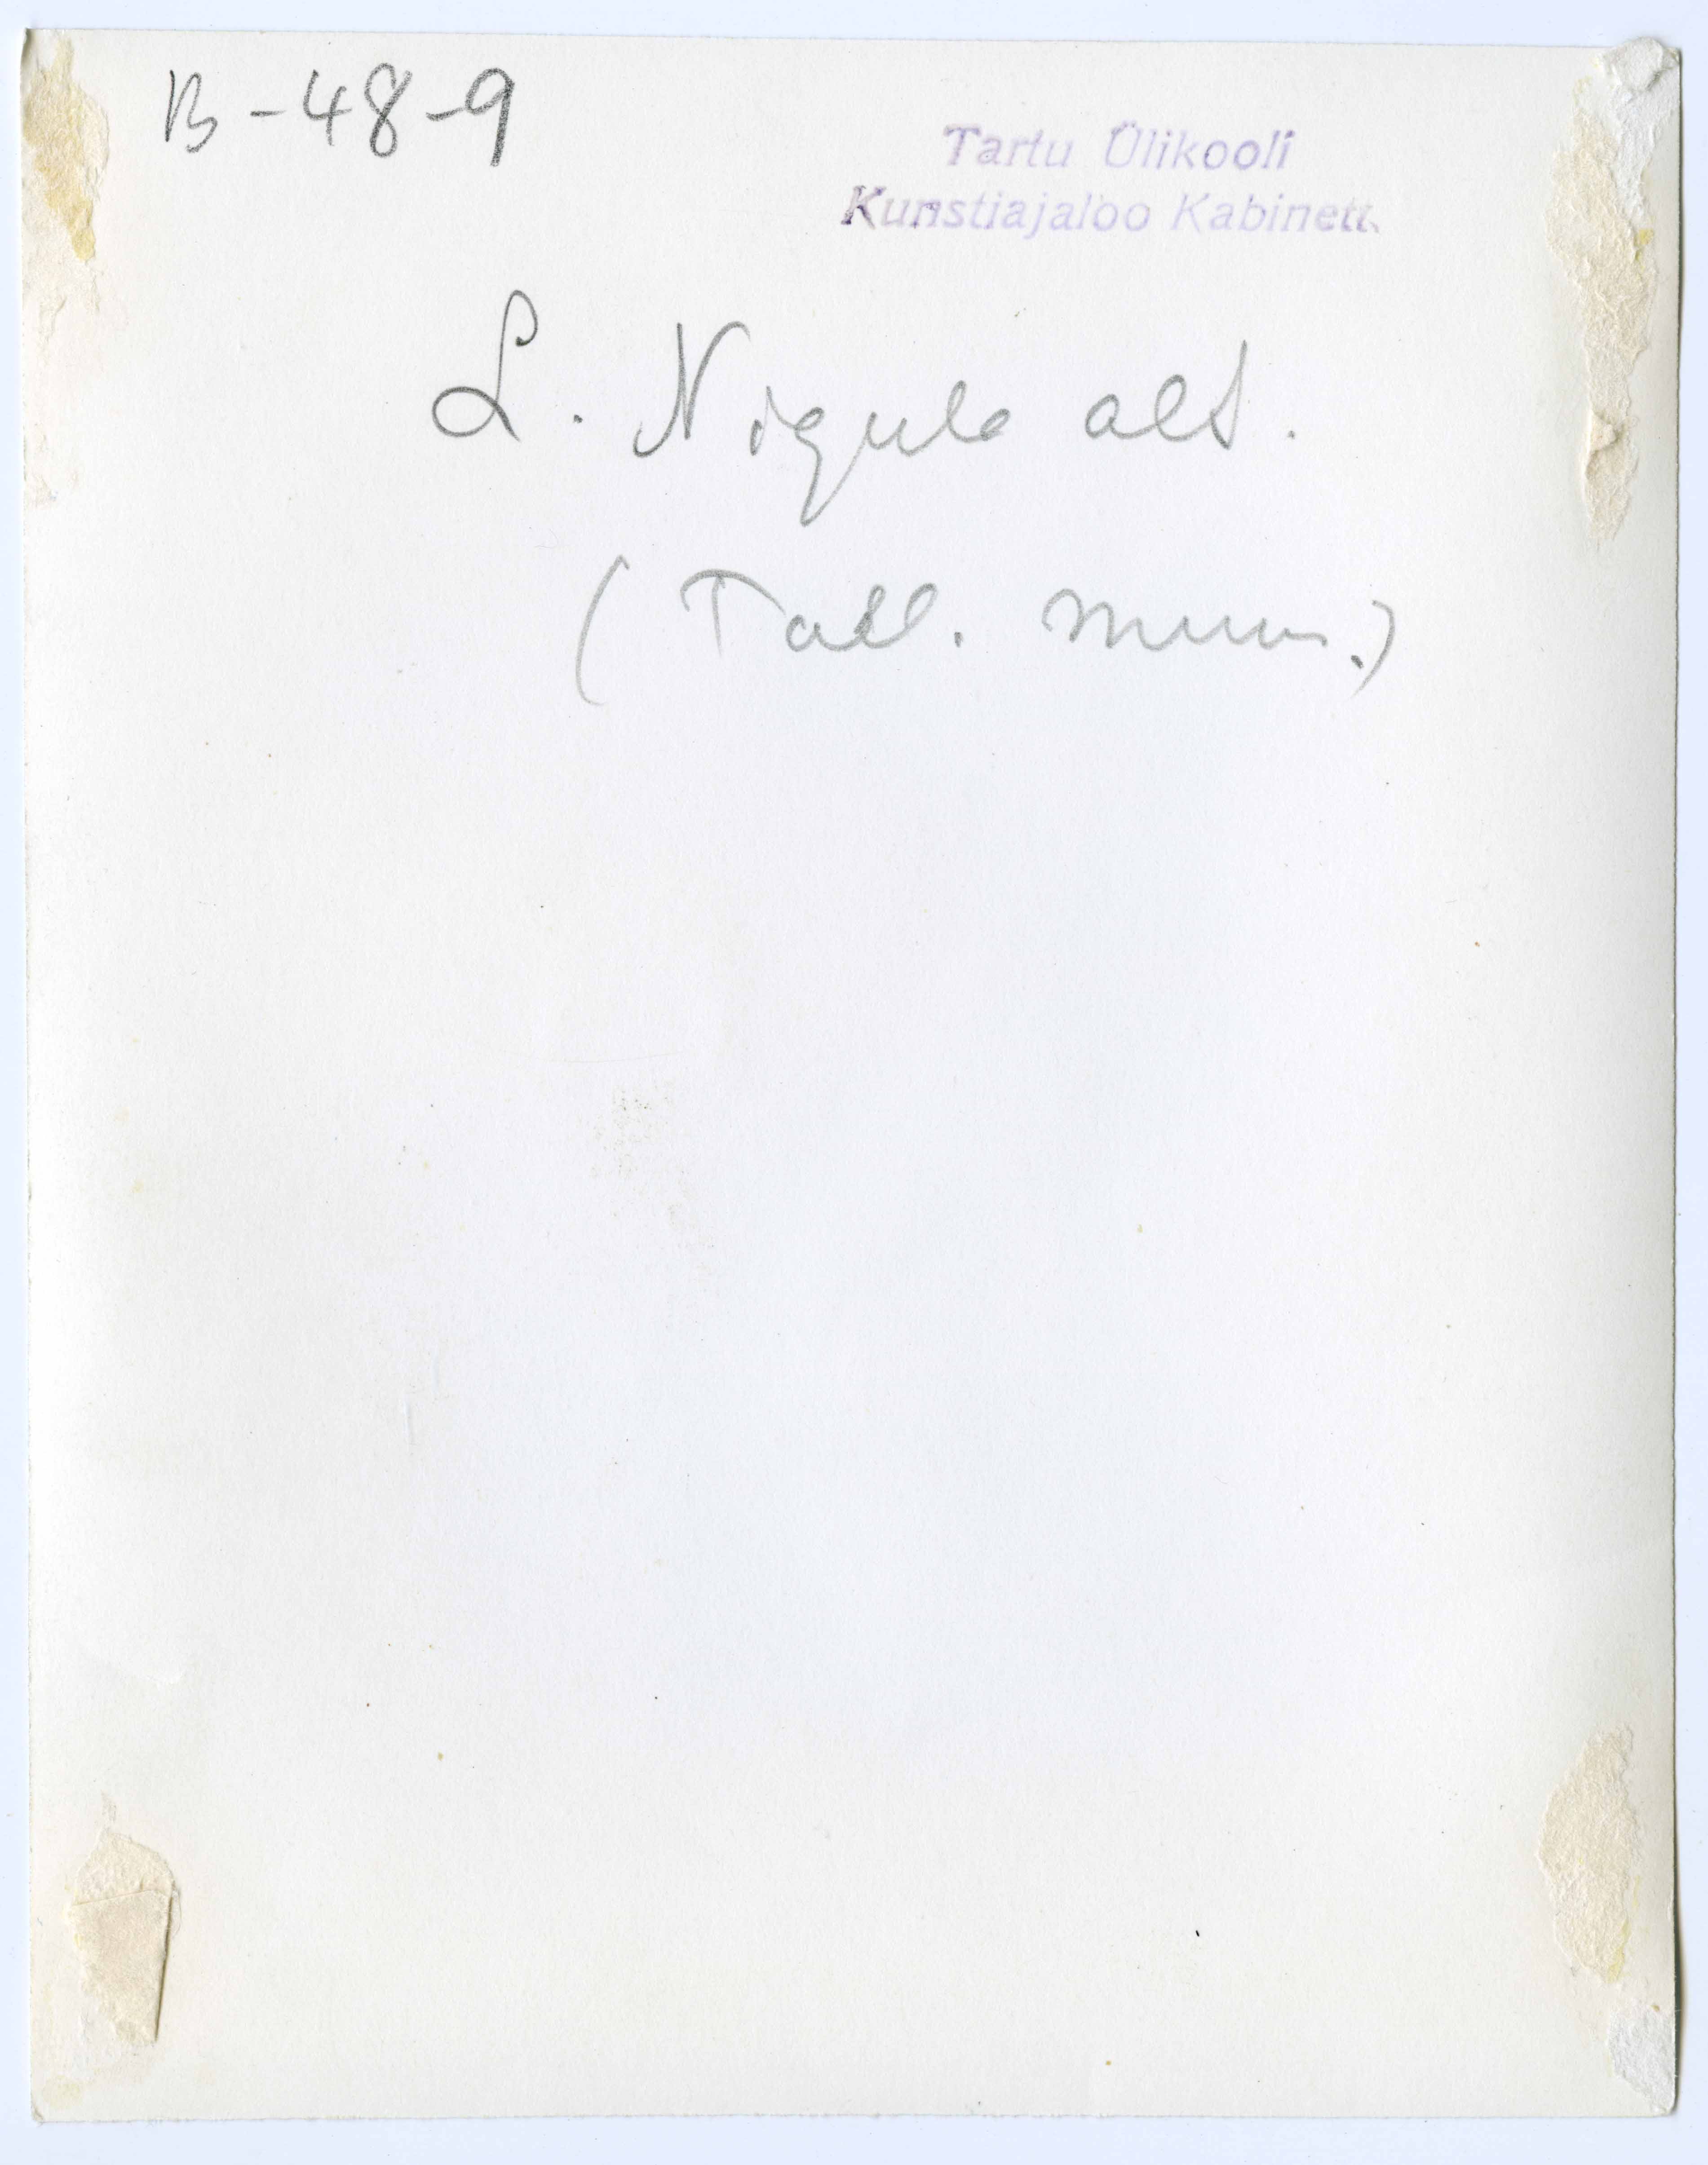 B-48-9
Tartu Ülikooli
Kunstiajaloo Kabinett.
L. Nigula alt.
(Tall. muus.)